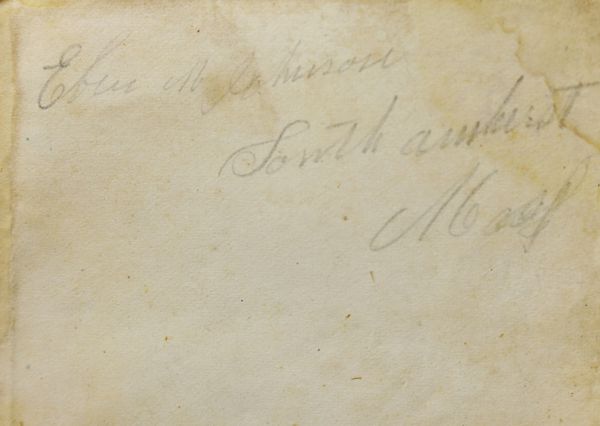 Eben M Johnson
South amherst
Mass